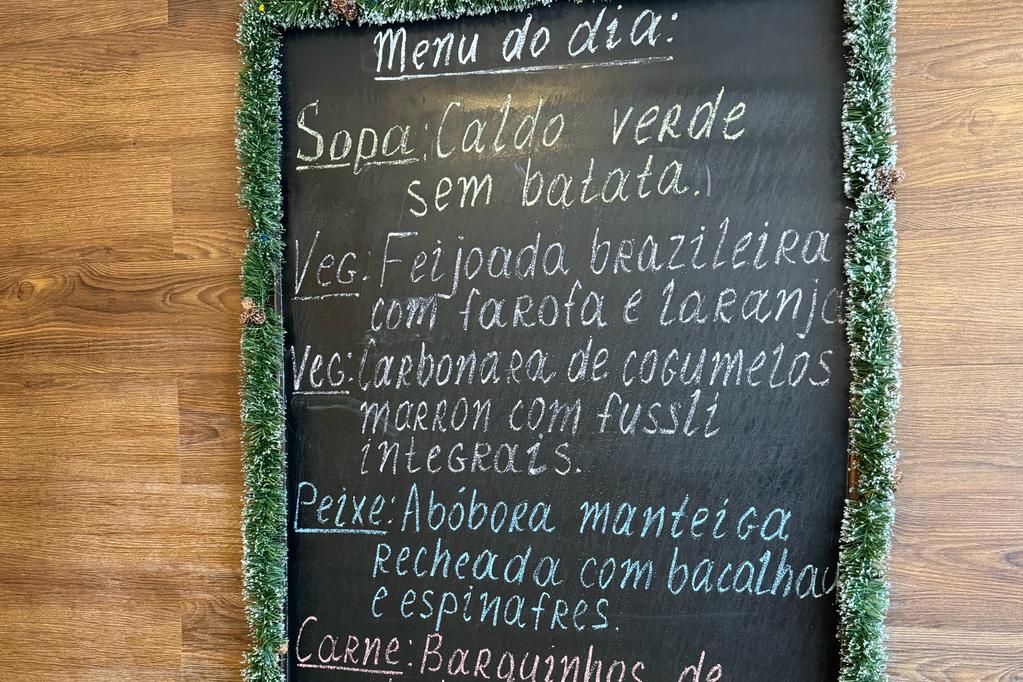 Menu do dia:
Sopa: Caldo verde
sem batata.
Veg: Feijoada brazileira
com farofa e laranja
Veg: Carbonara de cogumelos
marron com fussli
integrais.
Peixe: Abóbora manteiga
recheada com bacalhau
e espinafres.
Carne: Barquinhos de